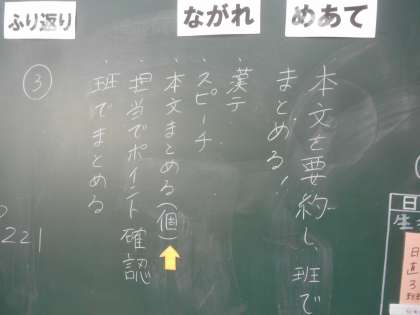 めあて
本文を要約し、班で
まとめる!
ながれ
・漢テ
・スピーチ
・本文まとめる(個)
・担当でポイント確認
・班でまとめる
ふり返り
③
221
日
生
日直
3